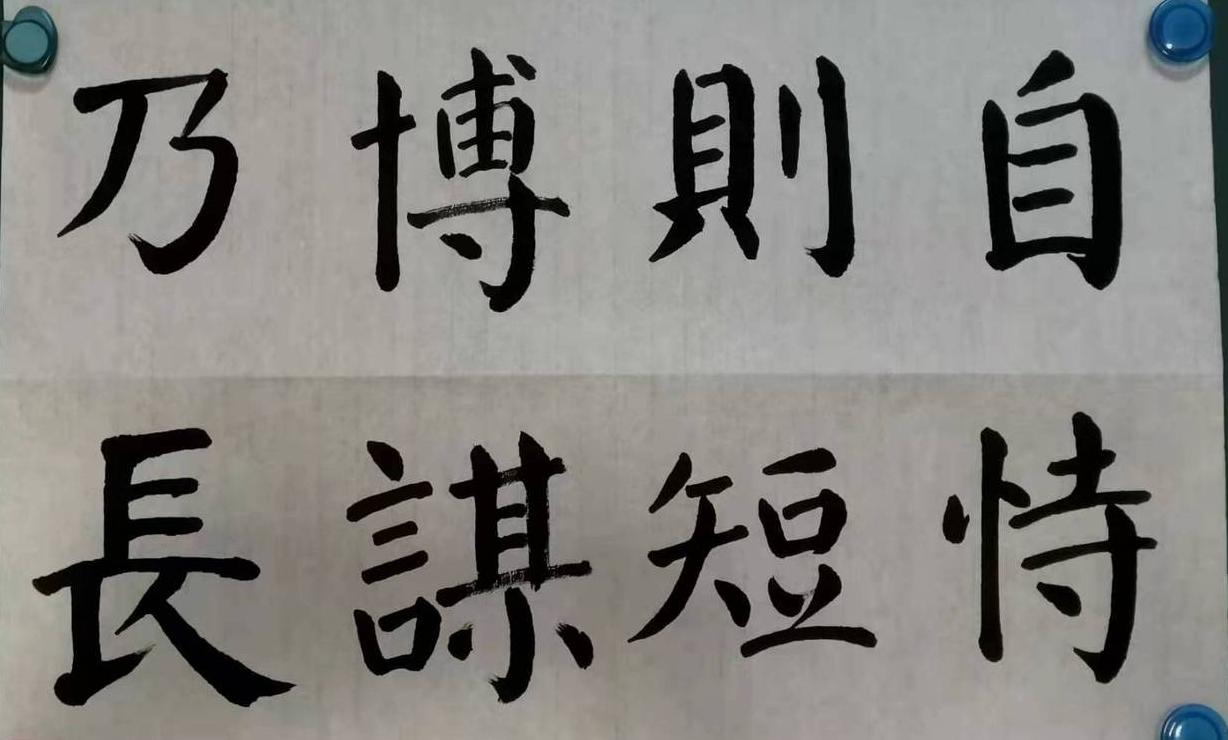 自恃
則短
博謀
乃長